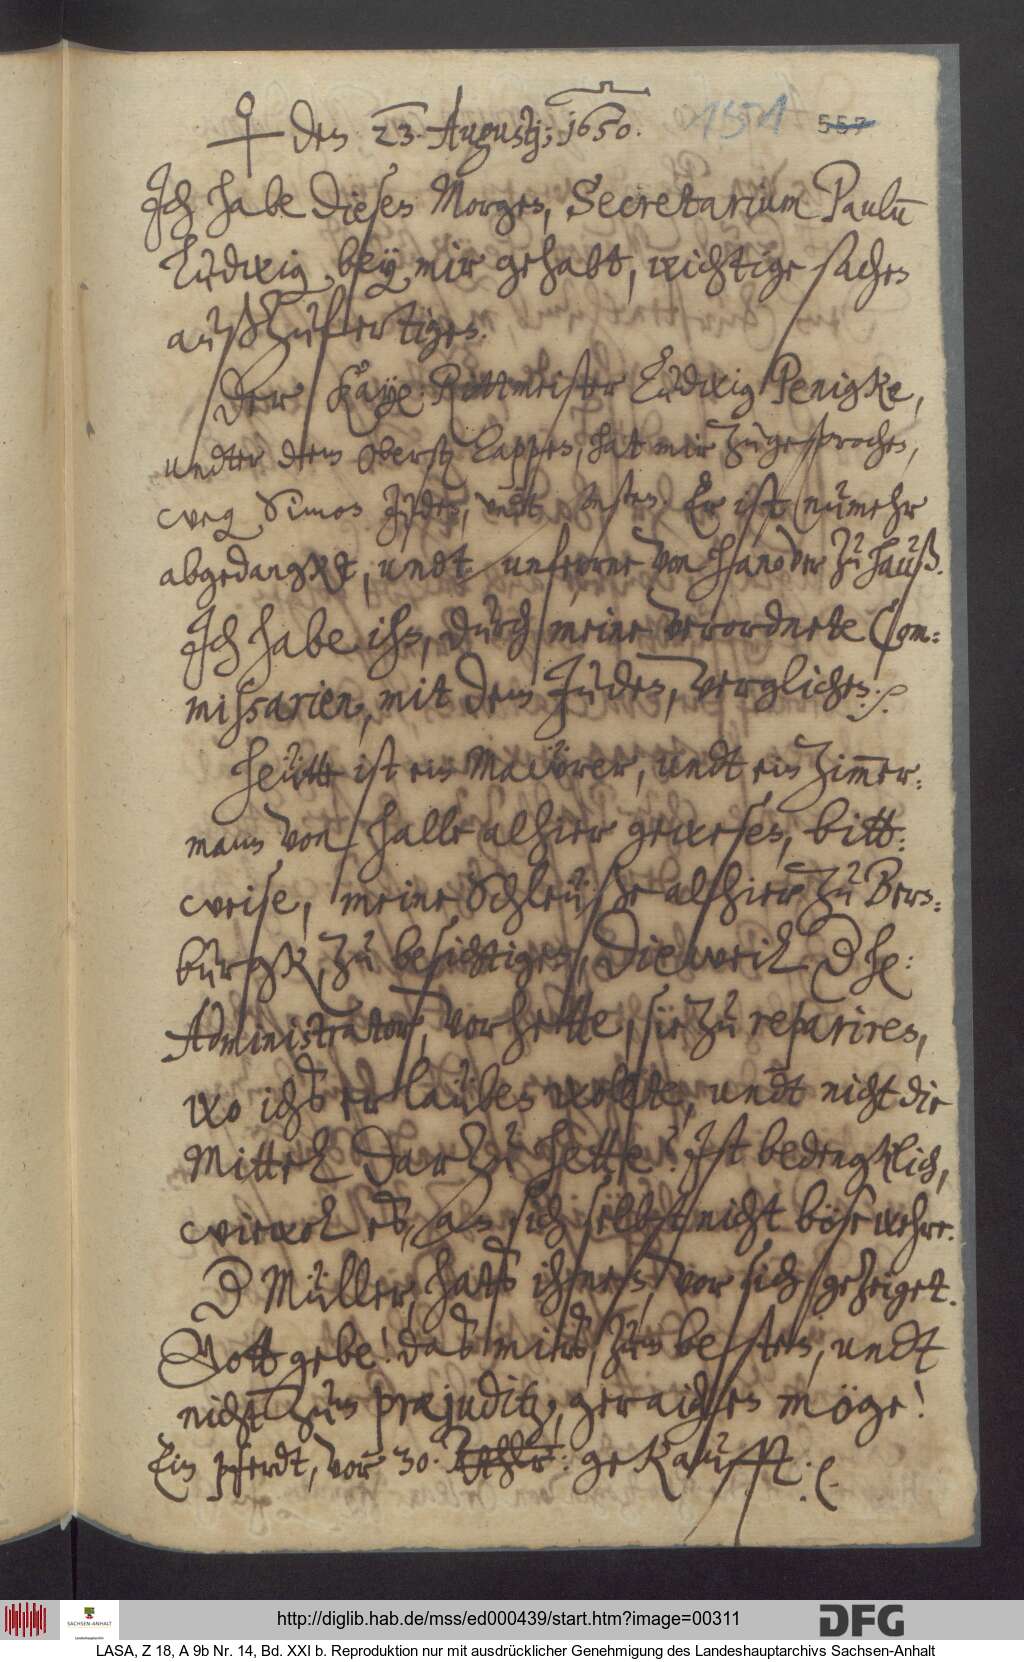 ♀ den 23. Augustj, 1650. 1551 557
Ich habe dieses Morges, Secretarium Paulū
Ludwig, beÿ mir gehabt, wichtige sachen
außzufertigen.
Der Kaÿ: Rittmeister Ludwig Penigke,
undter dem Obersten Lappen, hat mir zugesprochen,
weg Simon Juden, undt sonsten. Er ist numehr
abgedangkt, undt unferrne von Hanover zu hauß.
Ich habe ihn, durch meine verordnete Com-
missarien, mit dem Juden, verglichen.
Heütte ist ein Maüörer, undt ein Zim̄er-
mann von Halle alhier gewesen, bitt-
weise, meine Schleüse alhier zu Bern-
burgk, zu besichtigen, Dieweil D he:
Administrator, vor hette, sie zu repariren,
wo ichs erlaüben wollte, undt nicht die
Mittel darzu hette? Ist bedengklich,
wiewol es, an sich selbst nicht böse wehre.
D Müller, hats ihnen, vor sich gezeiget.
Gott gebe! das mirs, zum besten, undt
nicht zum præjuditz, geraichen möge!
Ein pferdt, vor 30. Rthlr: gekaufft.
http://diglib.hab.de/mss/ed000439/start.htm?image=00311
SACHSEN-ANHALT
DFG
LASA, Z 18, A 9b Nr. 14, Bd. XXI b. Reproduktion nur mit ausdrücklicher Genehmigung des Landeshauptarchivs Sachsen-Anhalt